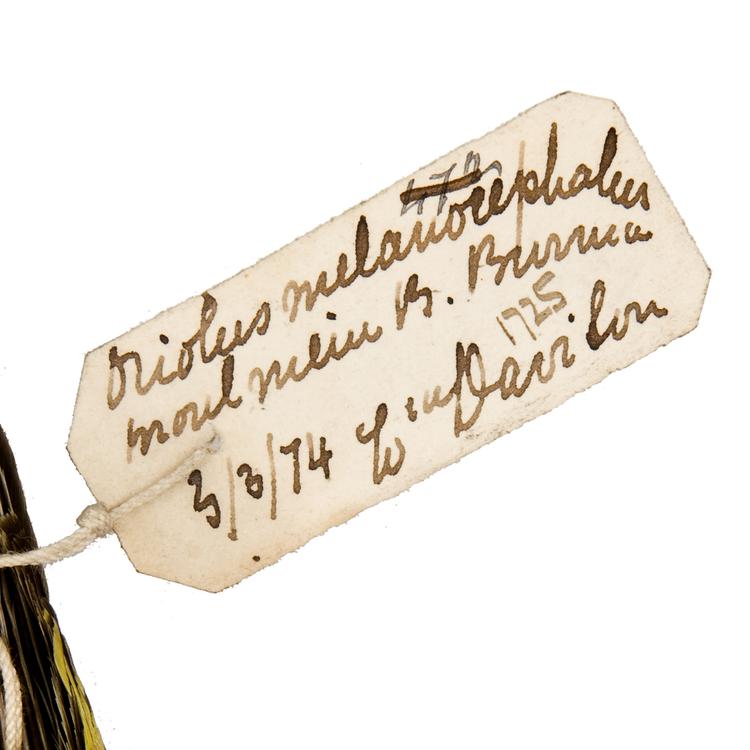 472
Oriolus melanocephalus
Moulmein B. Burma
1725
3/3/74 Wm Davison